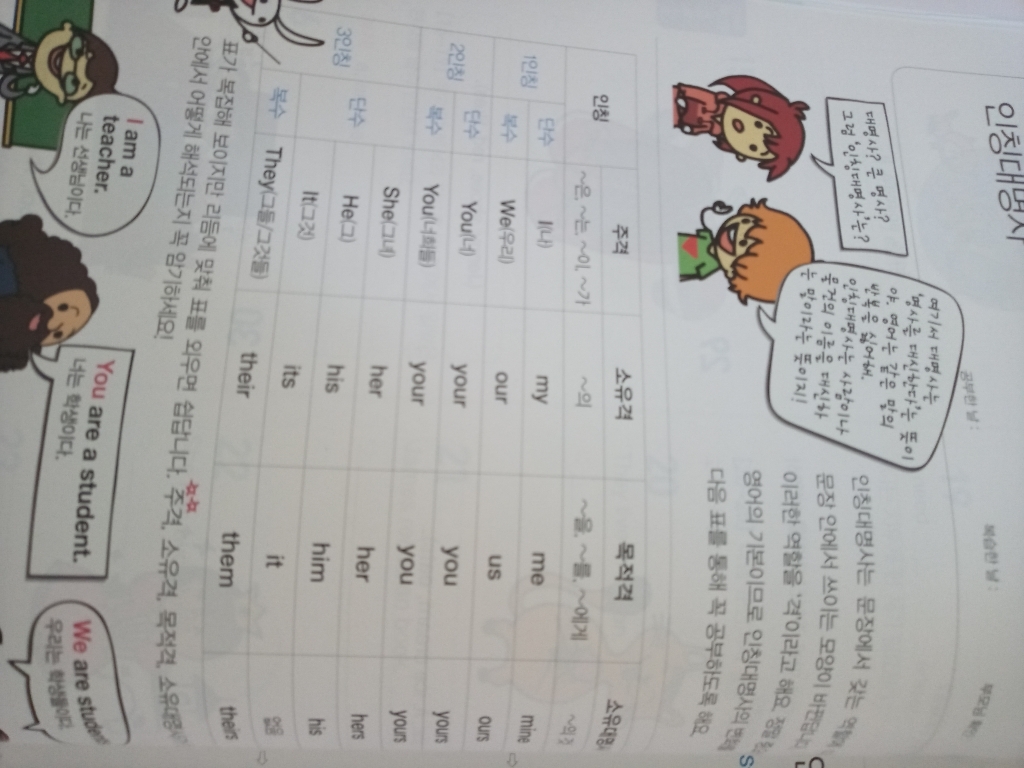 인칭대명사
공부한 날 :
복습한 날 :
대명사? 큰 명사?
그럼 '인칭대명사'는?
여기서 대명사는
'명사를 대신한다'는 뜻이
야. 영어는 같은 말의
반복을 싫어해.
인칭대명사는 사람이나
물건의 이름을 대신하
는 말이라는 뜻이지!
인칭대명사는 문장에서 갖는
문장 안에서 쓰이는 모양이
이러한 역할을 '격'이라고 해요.
영어의 기본이므로 인칭대명사의
다음 표를 통해 꼭 공부하도록 해요
인칭 주격 소유격 목적격
~은, ~는, ~이, ~가 ~의 ~을, ~를, ~에게
1인칭 단수 I(나) my me mine
복수 We(우리) our us ours
2인칭 단수 You(너) your you yours
복수 You(너희들) your you yours
3인칭 단수 She(그녀) her her hers
He(그) his him his
It(그것) its it 없음
복수 They(그들/그것들) their them theirs
표가 복잡해 보이지만 리듬에 맞춰 표를 외우면 쉽답니다. 주격, 소유격, 목적격, 소유대명사
안에서 어떻게 해석되는지 꼭 암기하세요!
I am a
teacher.
나는 선생님이다.
You are a student.
너는 학생이다.
We are
우리는 학생들이다.